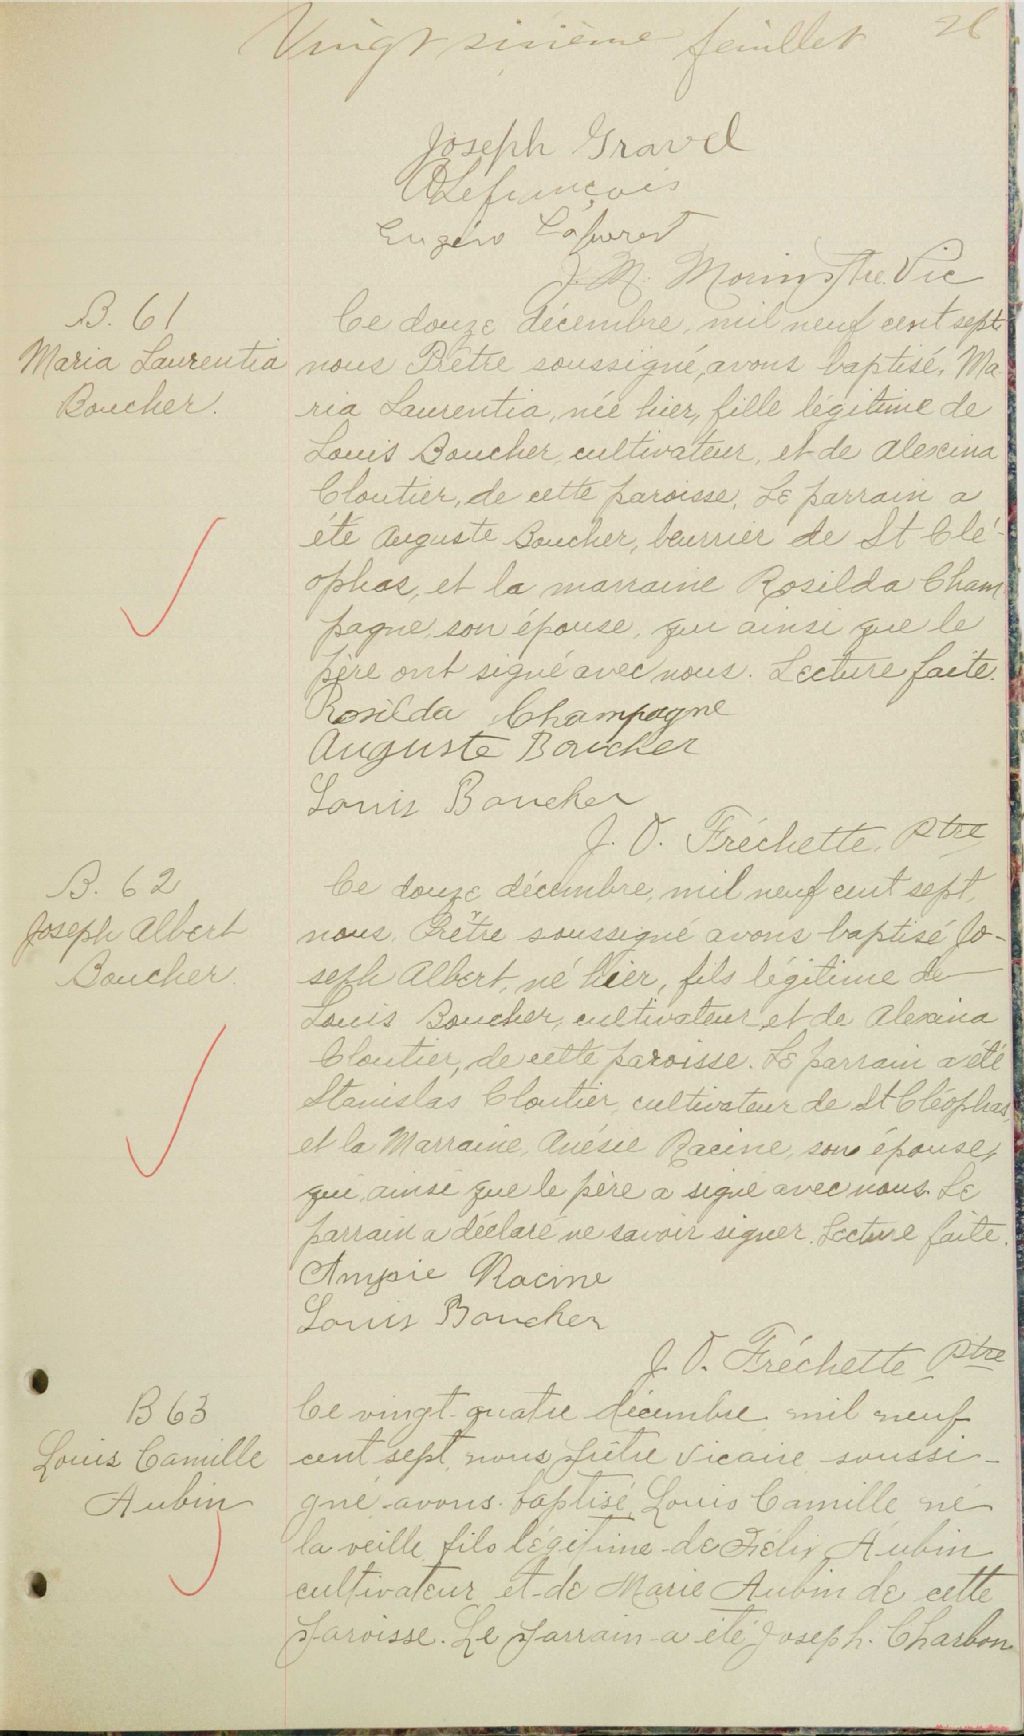 Vingt sixième feuillet 26
Joseph Gravel
A Lefrançois
Eugène
J. M. Morin Ptre. Vic
B. 61
Maria Laurentia
Boucher.
Ce douze décembre, mil neuf cent sept,
nous Prêtre soussigné, avons baptisé, Ma-
ria Laurentia, née hier, fille légitime de
Louis Boucher, cultivateur, et de Alexina
Cloutier, de cette paroisse. Le parrain a
été Auguste Boucher, beurrier de St Clé-
ophas, et la marraine Rosilda Cham
pagne, son épouse, qui ainsi que le
père ont signé avec nous. Lecture faite.
Rosilda Champagne
Auguste Boucher
Louis Boucher
J. O. Fréchette, Ptre
B. 62
Joseph Albert
Boucher.
Ce douze décembre, mil neuf cent sept,
nous, Prêtre soussigné avons baptisé Jo-
seph Albert, né hier, fils légitime de
Louis Boucher, cultivateur et de Alexina
Cloutier, de cette paroisse. Le parrain a été
Stanislas Cloutier, cultivateur de St Cléophas,
et la Marraine, Anésie Racine, son épouse,
qui, ainsi que le père a signé avec nous. Le
parrain a déclaré ne savoir signer. Lecture faite.
Racine
Louis Boucher
J. O. Fréchette Ptre
B 63
Louis Camille
Aubin
Ce vingt-quatre décembre mil neuf
cent sept, nous prêtre vicaire soussi-
gné avons baptisé Louis Camille né
la veille fils légitime de Félix Aubin
cultivateur et de Marie Aubin de cette
paroisse. Le parrain a été Joseph. Charbon